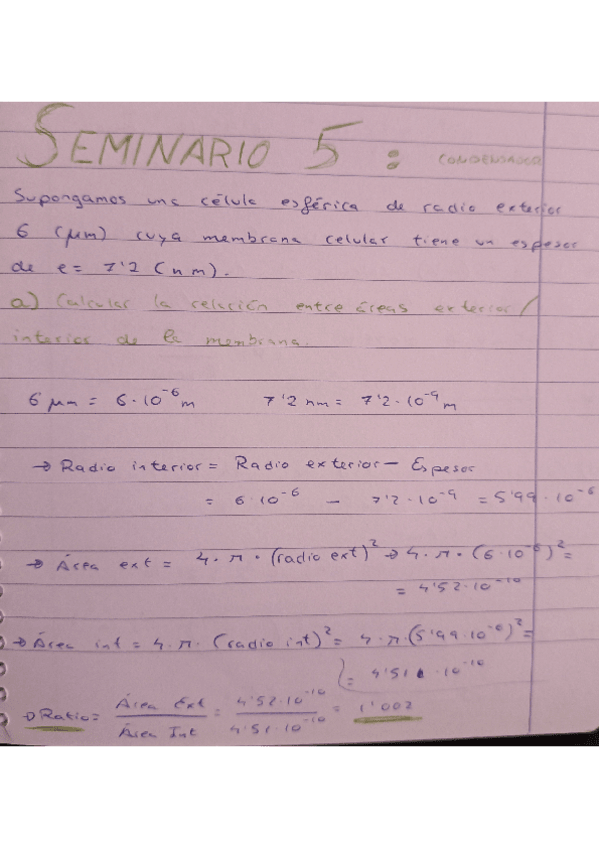 SEMINARIO 5 : CONDENSADOR
Supongamos una célula esférica de radio exterior
6 (μm) cuya membrana celular tiene un espesor
de e = 7'2 (nm).
a) Calcular la relación entre áreas exterior/
interior de la membrana.
6 μm = 6·10⁻⁶ m 7'2 nm = 7'2·10⁻⁹ m
→ Radio interior = Radio exterior - Espesor
= 6·10⁻⁶ - 7'2·10⁻⁹ = 5'99·10⁻⁶
→ Área ext = 4·π·(radio ext)² → 4·π·(6·10⁻⁶)² =
= 4'52·10⁻¹⁰
→ Área int = 4·π·(radio int)² = 4·π·(5'99·10⁻⁶)² =
= 4'51·10⁻¹⁰
→ Ratio = Área Ext / Área Int = 4'52·10⁻¹⁰ / 4'51·10⁻¹⁰ = 1'002